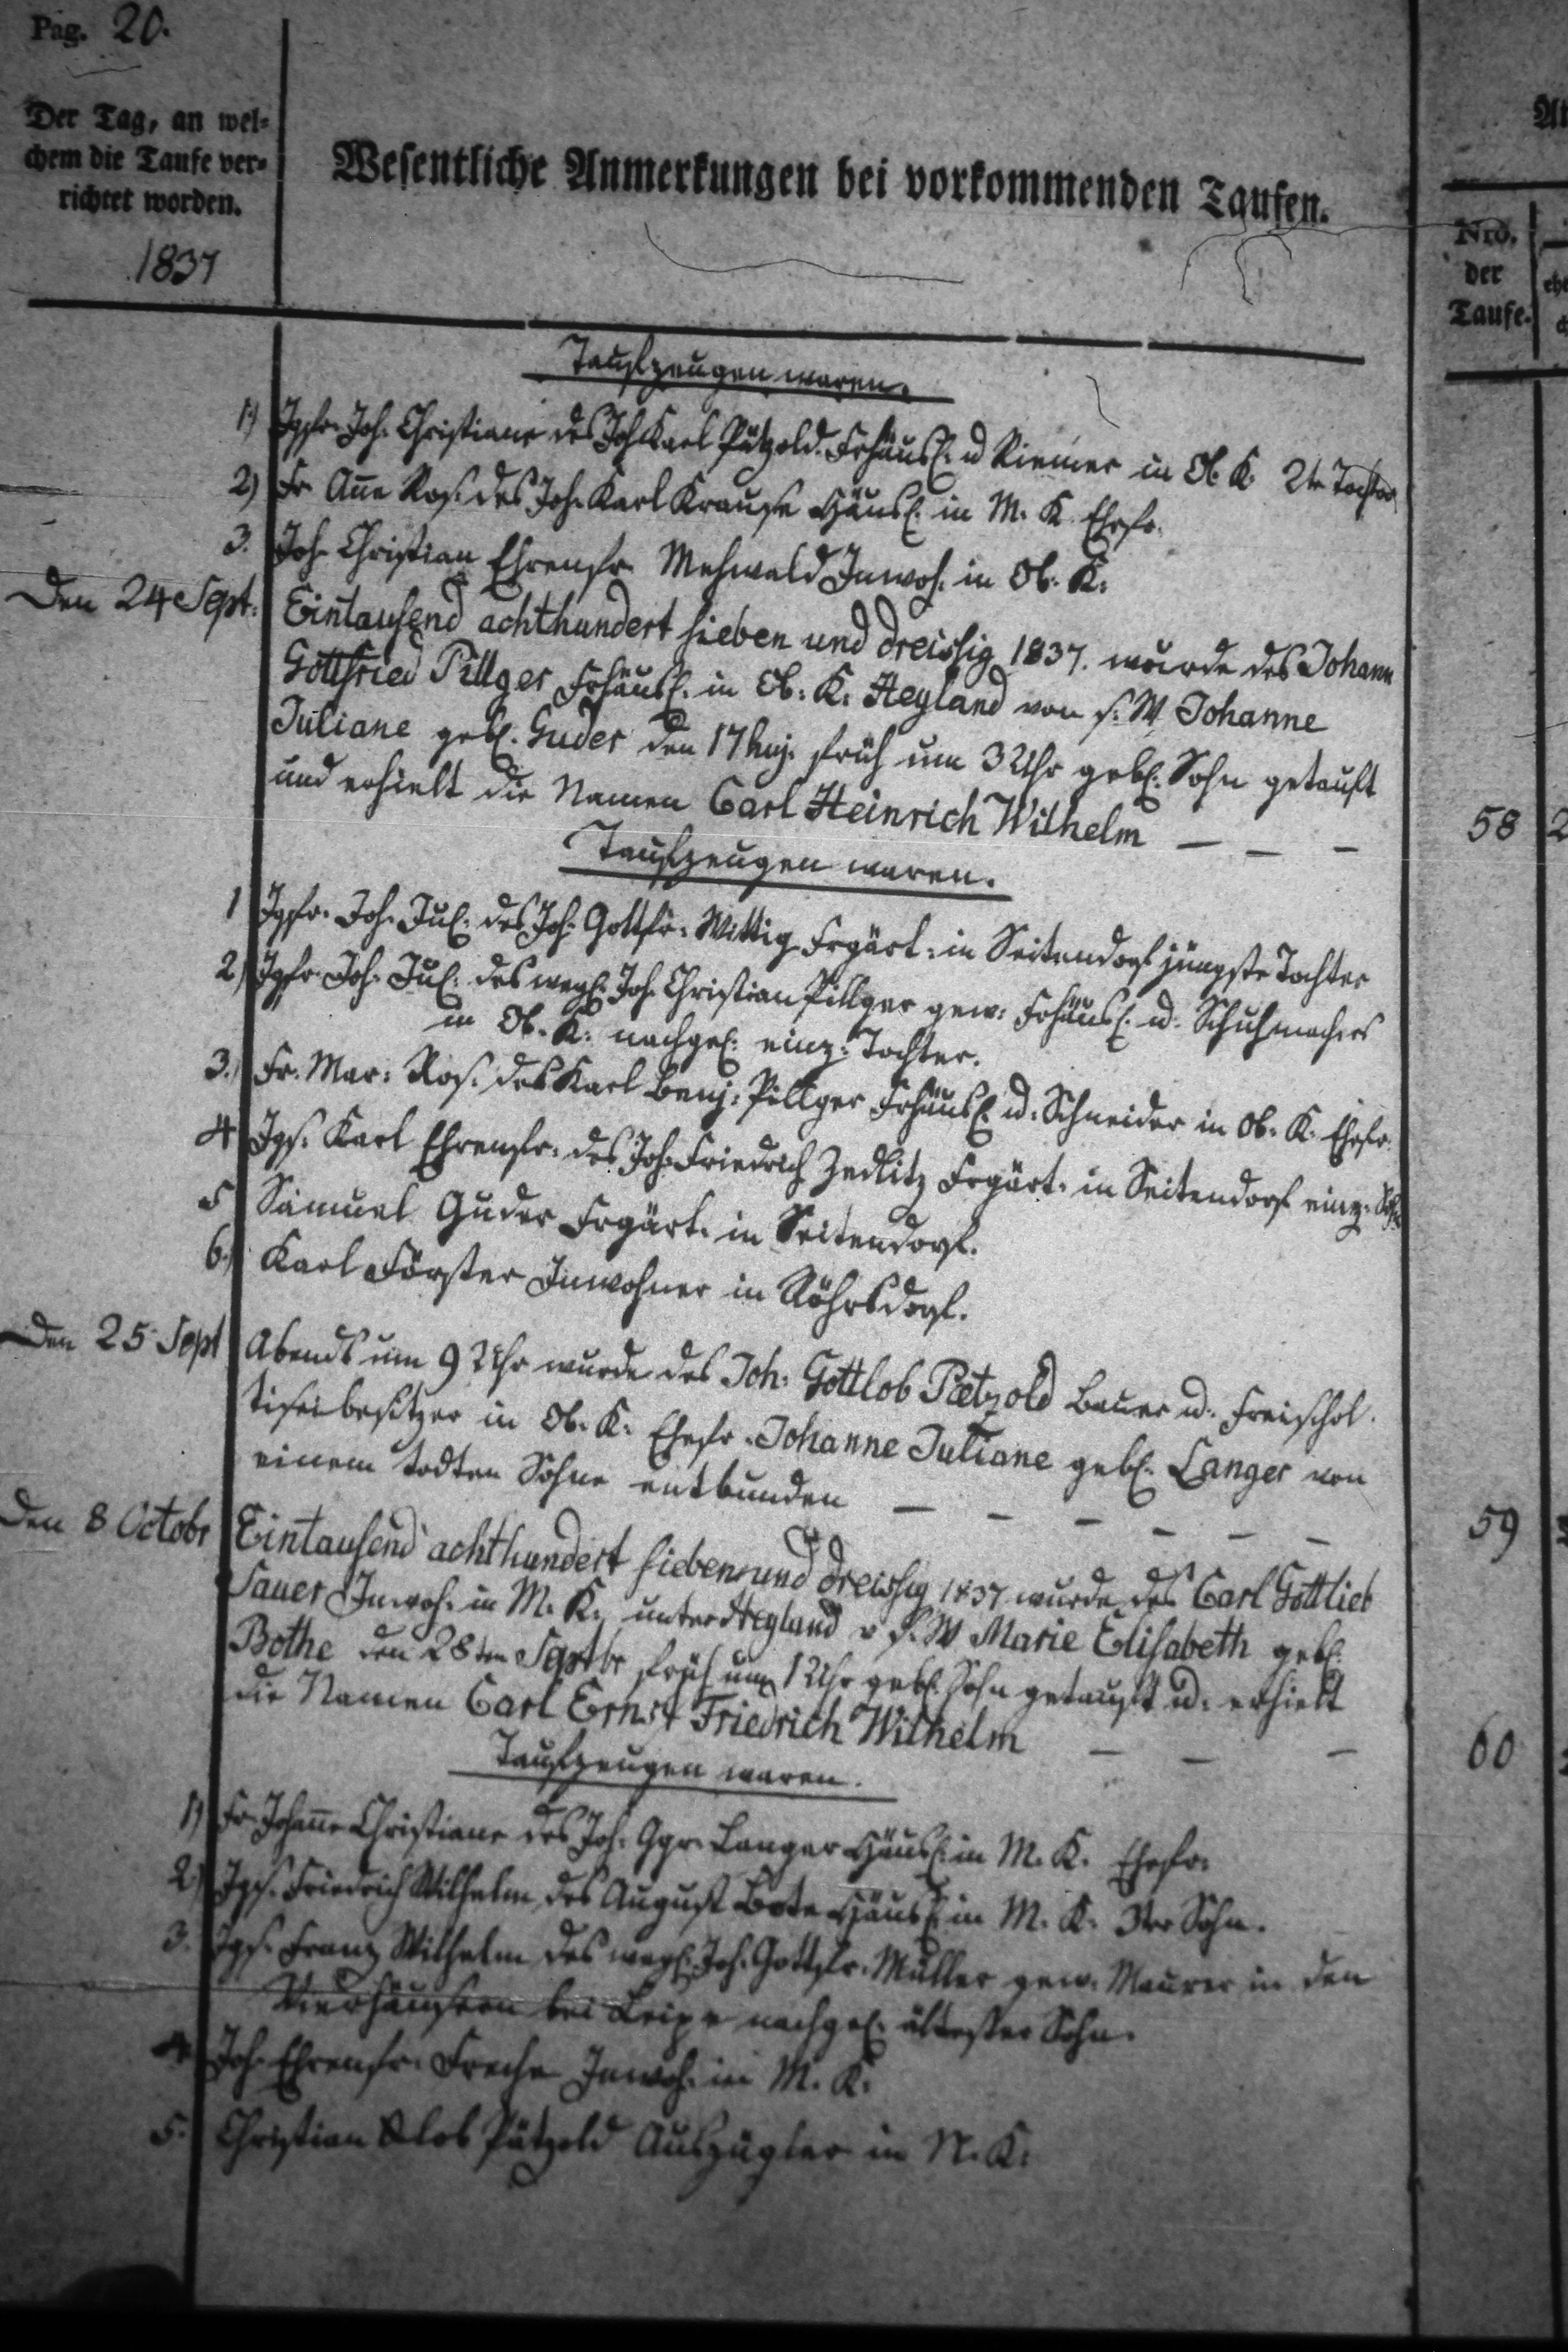 Pag. 20.
Der Tag, an wel-
chem die Taufe ver-
richtet worden.
1837
Wesentliche Anmerkungen bei vorkommenden Taufen.
Nro.
der
Taufe.
Taufzeugen waren.
1.) Jgfr. Joh. Christiane des Joh Karl Pätzold. Frhäusl. u Riemer in Ob. K. 2te Tochter
2) Fr Añe Ros. des Joh. Karl Krause Häusl. in M. K. Ehefr.
3. Joh. Christian Ehrenfr. Mehwald Inwoh. in Ob. K.
Den 24 Sept. Eintausend achthundert sieben und dreissig 1837. wurde des Johann
Gottfried Pillger Frhäusl. in Ob. K. Heyland von s. W. Johanne
Juliane gebl. Guder den 17 huj. früh um 3 Uhr gebl. Sohn getauft
und erhielt die Namen Carl Heinrich Wilhelm — — — 58
Taufzeugen waren.
1 Jgfr. Joh. Jul. des Joh. Gottfr. Wittig Frgärt. in Seitendorf jüngste Tochter
2) Jgfr. Joh. Jul. des wegl. Joh. Christian Pillger gew. Frhäusl. u. Schuhmachers
in Ob. K. nachgel. einz. Tochter.
3.) Fr. Mar. Ros. des Karl Benj. Pillger Frhäusl. u. Schneider in Ob. K. Ehefr.
4 Jgs. Karl Ehrenfr. des Joh. Friedrich Zedlitz Frgärt. in Seitendorf einz. Sohn
5 Samuel Guder Frgärt. in Seitendorf.
6.) Karl Förster Inwohner in Röhrsdorf.
Den 25 Sept Abends um 9 Uhr wurde des Joh. Gottlob Paetzold Bauer u. Freischol.
tiseibesitzer in Ob. K. Ehefr. Johanne Juliane gebl. Langer von
einem todten Sohne entbunden — — — — — — 59
Den 8 Octobr Eintausend achthundert sieben und dreissig 1837 wurde des Carl Gottlieb
Sauer Inwoh. in M. K. unter Heyland v s. W Marie Elisabeth gebl.
Bothe den 28ten Septbr früh um 1 Uhr gebl. Sohn getauft u. erhielt
die Namen Carl Ernst Friedrich Wilhelm — — — 60
Taufzeugen waren.
1) Fr Johañe Christiane des Joh. Ggr. Langer Häusl. in M. K. Ehefr.
2.) Jgs. Friedrich Wilhelm des August Bote Häusl. in M. K. 3ter Sohn.
3. Jgs. Franz Wilhelm des wegl. Joh. Gottfr. Müller gew. Maurer in den
Vierhäusern bei Leipe nachgel. ältester Sohn.
4. Joh. Ehrenfr. Freche Inwoh. in M. K.
5. Christian Pätzold Auszügler in N. K.